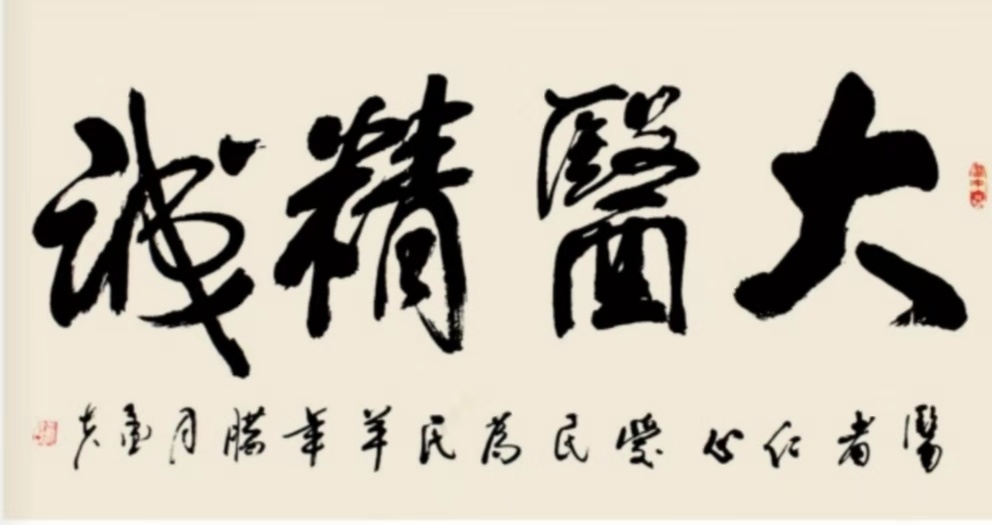 大醫精誠
醫者仁心愛民為民羊年臘月